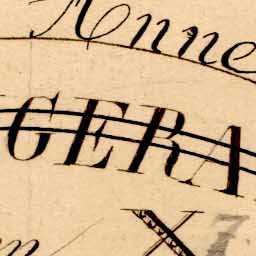 Anne
GERA
X 7